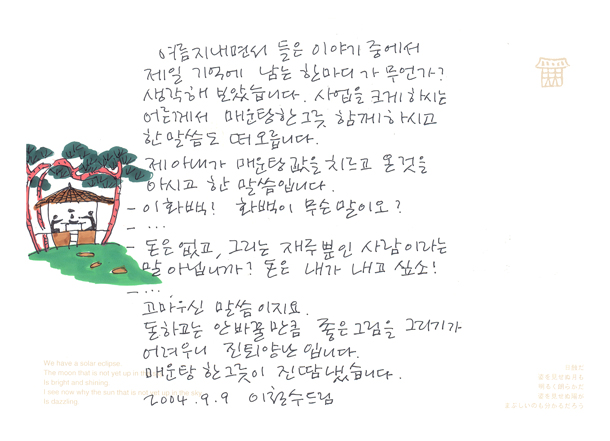 여름 지내면서 들은 이야기 중에서
제일 기억에 남는 한마디가 무언가?
생각해 보았습니다. 사업을 크게 하시는
어른께서 매운탕 한 그릇 함께 하시고
한 말씀도 떠오릅니다.
제 아내가 매운탕 값을 치르고 온 것을
아시고 한 말씀입니다.
- 이화백! 화백이 무슨 말이오?
- ...
- 돈은 없고, 그리는 재주뿐인 사람이라는
말 아닙니까? 돈은 내가 내고 싶소!
- ...
고마우신 말씀이지요.
돈하고는 안 바꿀 만큼 좋은 그림을 그리기가
어려우니 진퇴양난입니다.
매운탕 한 그릇이 진땀 냈습니다.
2004. 9. 9 이철수 드림
We have a solar eclipse
The moon that is not yet up in
is bright and shining.
I see now why the sun that is not yet up in the sky
is dazzling.